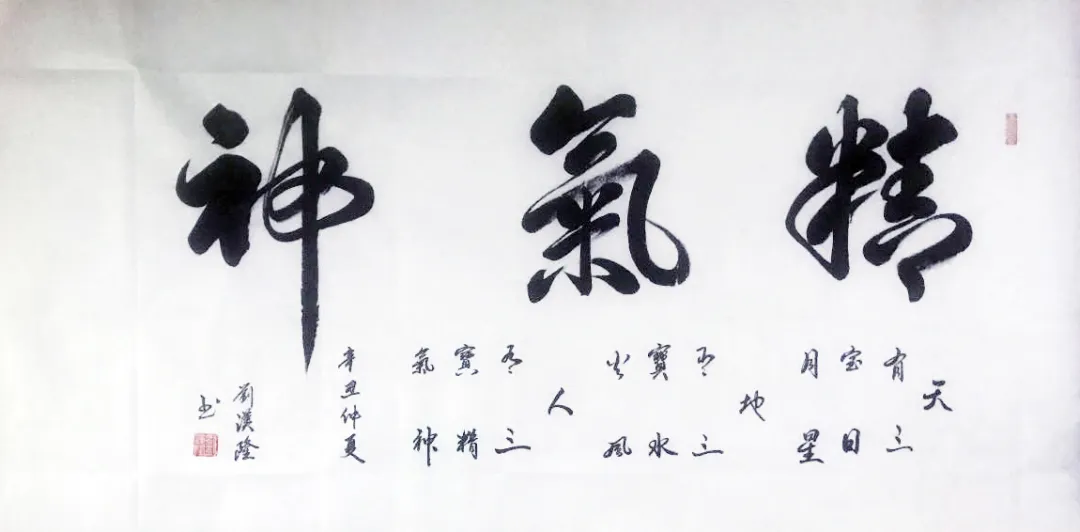 精氣神
天
有三
宝日
月星
地
有三
寶水
火風
人
有三
寳精
氣神
辛丑仲夏
劉漢隆
书